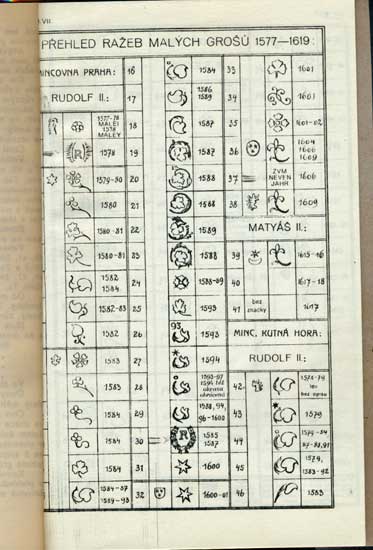 VII
PŘEHLED RAŽEB MALÝCH GROŠŮ 1577—1619:
MINCOVNA PRAHA:
RUDOLF II.:
1577-78
MALEI
1578
MALEY
R
1578
1579-80
1580
1580-81
1580-81
1582
1584
1582-83
1582
1583
1583
1584
1584
1584
1584-87
1589-93
16
1584
17
1586
1589
18
1587
19
1587
20
1588
21
1588
22
1589
23
1588
24
1588-89
25
1593
26
93
1593
27
1594
28
1593-97
1594 bez
okrasu
obvisomd
29
1588, 94,
96-1600
30
R
1585
1587
31
1600
32
1600-01
33
1601
34
1601
35
1601-02
36
1604
1606
1609
37
ZVM
NEVEN
JAHR
1606
38
1609
MATYÁŠ II.:
39
1615-16
40
1617-18
41
bez
značky
1617
MINC. KUTNÁ HORA:
RUDOLF II.:
42
1578-79
lev
bez oprav
43
1579
44
1579-84
87-88,91
45
1579,
1583-92
46
1583